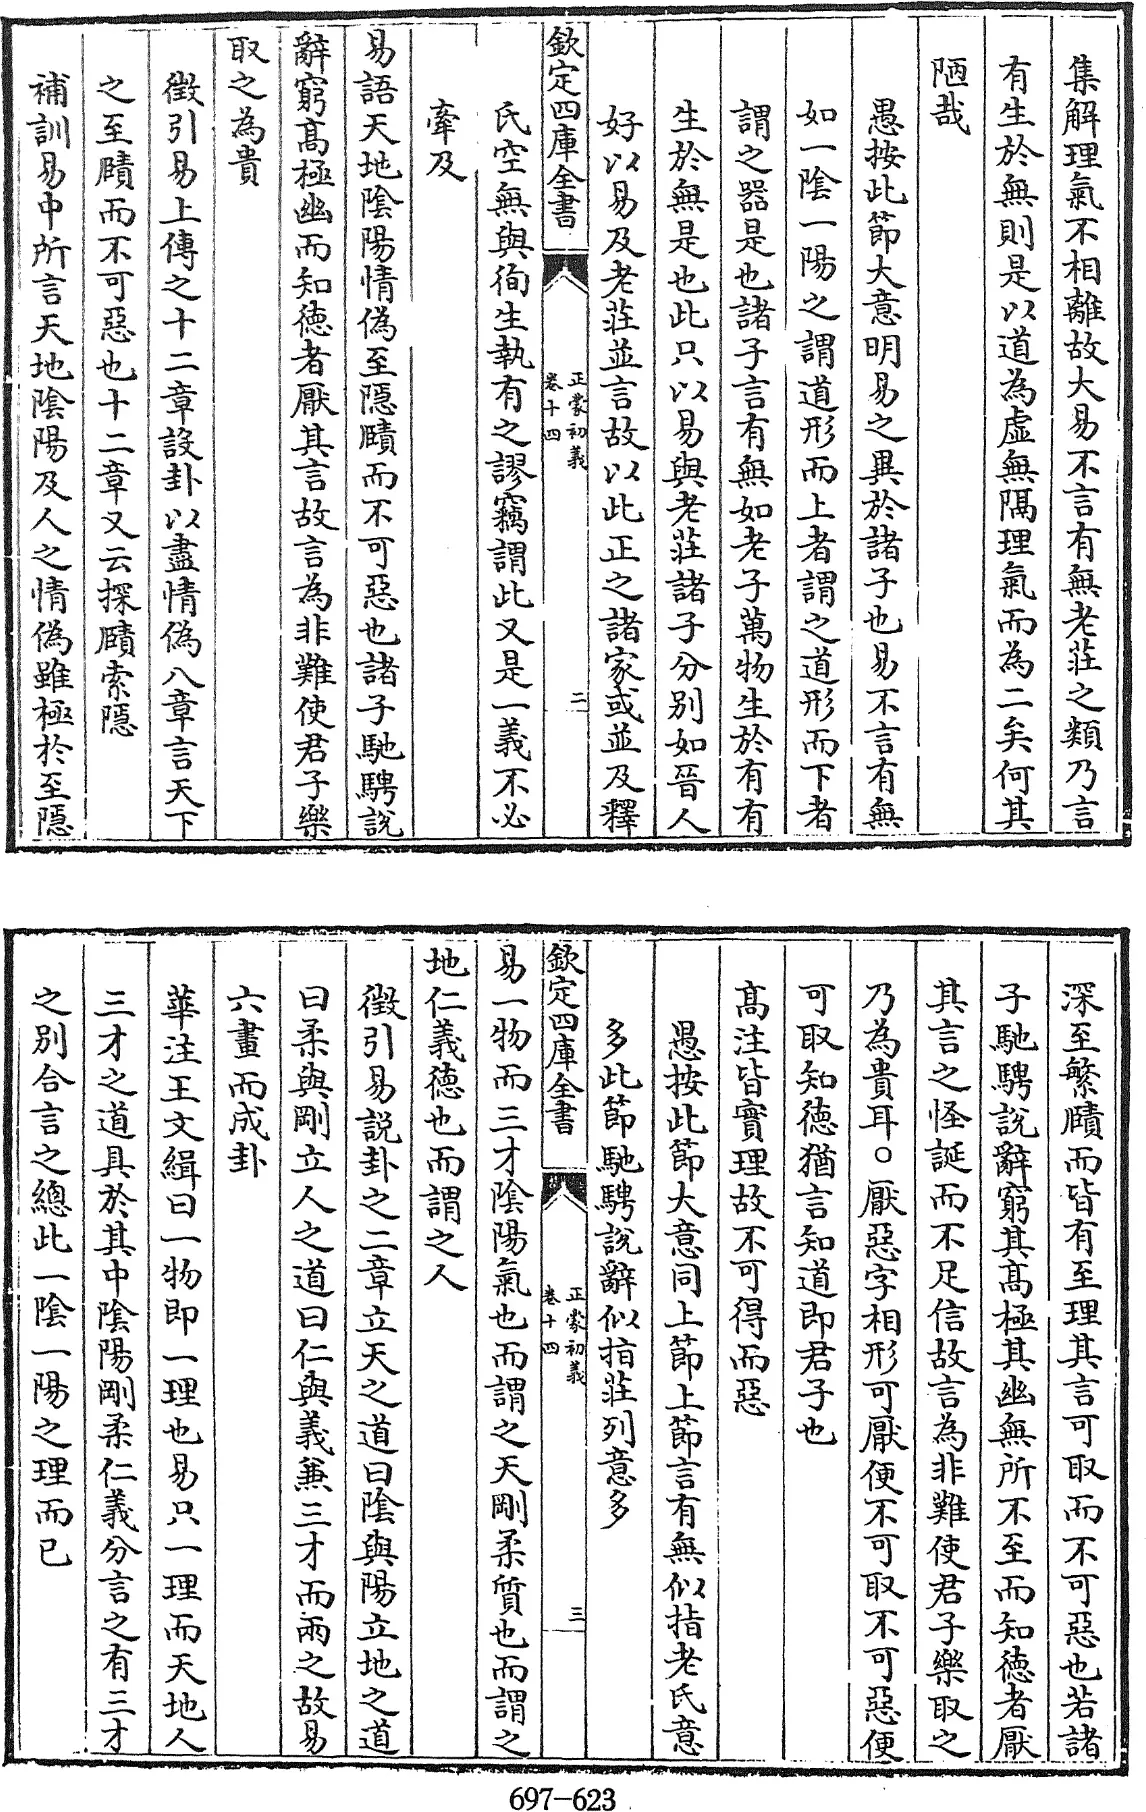 集解理氣不相離故大易不言有無老莊之類乃言
有生於無則是以道為虛無隔理氣而為二矣何其
陋哉
愚按此節大意明易之異於諸子也易不言有無
如一陰一陽之謂道形而上者謂之道形而下者
謂之器是也諸子言有無如老子萬物生於有有
生於無是也此只以易與老莊諸子分別如晉人
好以易及老莊並言故以此正之諸家或並及釋
欽定四庫全書
正蒙初義
卷十四
二
氏空無與徇生執有之謬竊謂此又是一義不必
牽及
易語天地陰陽情偽至隱賾而不可惡也諸子馳騁說
辭窮高極幽而知德者厭其言故言為非難使君子樂
取之為貴
徵引易上傳之十二章設卦以盡情偽八章言天下
之至賾而不可惡也十二章又云探賾索隱
補訓易中所言天地陰陽及人之情偽雖極於至隱
深至繁賾而皆有至理其言可取而不可惡也若諸
子馳騁說辭窮其高極其幽無所不至而知德者厭
其言之怪誕而不足信故言為非難使君子樂取之
乃為貴耳○厭惡字相形可厭便不可取不可惡便
可取知德猶言知道即君子也
高注皆實理故不可得而惡
愚按此節大意同上節上節言有無似指老氏意
多此節馳騁說辭似指莊列意多
欽定四庫全書
正蒙初義
卷十四
三
易一物而三才陰陽氣也而謂之天剛柔質也而謂之
地仁義德也而謂之人
徵引易說卦之二章立天之道曰陰與陽立地之道
曰柔與剛立人之道曰仁與義兼三才而兩之故易
六畫而成卦
華注王文緝曰一物即一理也易只一理而天地人
三才之道具於其中陰陽剛柔仁義分言之有三才
之別合言之總此一陰一陽之理而已
697-623